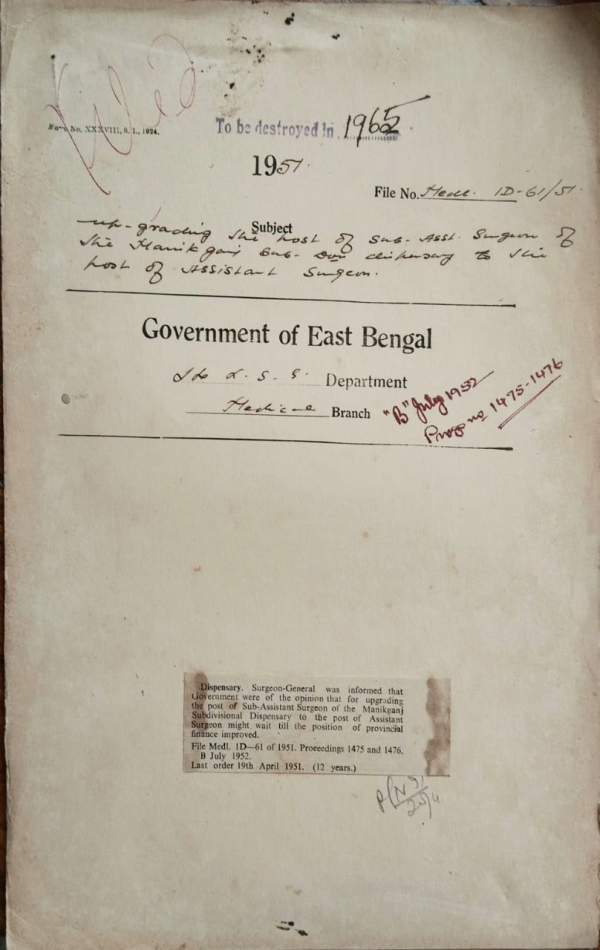 Filed
Form No. XXXVIII, S. I., 1924.
To be destroyed in 1965
1951.
File No. Medl. 1D-61/51
Subject
up-grading the post of Sub-Asst. Surgeon of
the Manikganj Sub-Don dispensary to the
post of Assistant Surgeon.
Government of East Bengal
H & L. S. G. Department
Medical Branch
"B" July 1952
Progs no 1475-1476
Dispensary. Surgeon-General was informed that
Government were of the opinion that for upgrading
the post of Sub-Assistant Surgeon of the Manikganj
Subdivisional Dispensary to the post of Assistant
Surgeon might wait till the position of provincial
finance improved.
File Medl. 1D—61 of 1951. Proceedings 1475 and 1476.
B July 1952.
Last order 19th April 1951. (12 years.)